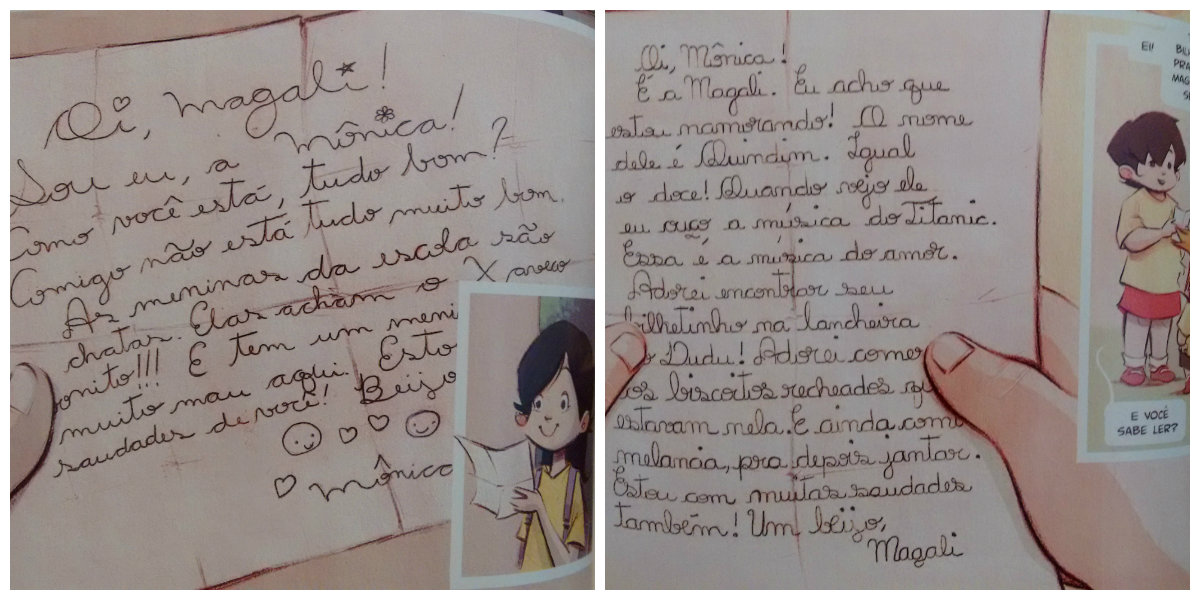 Oi, Magali!
Sou eu, a Mônica!
Como você está, tudo bom?
Comigo não está tudo muito bom.
As meninas da escola são
chatas. Elas acham o Xaveco
bonito!!! E tem um meni
muito mau aqui. Esto
saudades de você! Beijo
Mônica
Oi, Mônica!
É a Magali. Eu acho que
estou namorando! O nome
dele é Quindim. Igual
o doce! Quando vejo ele
eu ouço a música do Titanic.
Essa é a música do amor.
Adorei encontrar seu
bilhetinho na lancheira
o Dudu! Adorei comer
os biscoitos recheados qu
estavam nela. E ainda comi
melancia, pra depois jantar.
Estou com muitas saudades
também! Um beijo,
Magali
EI!
E VOCÊ
SABE LER?